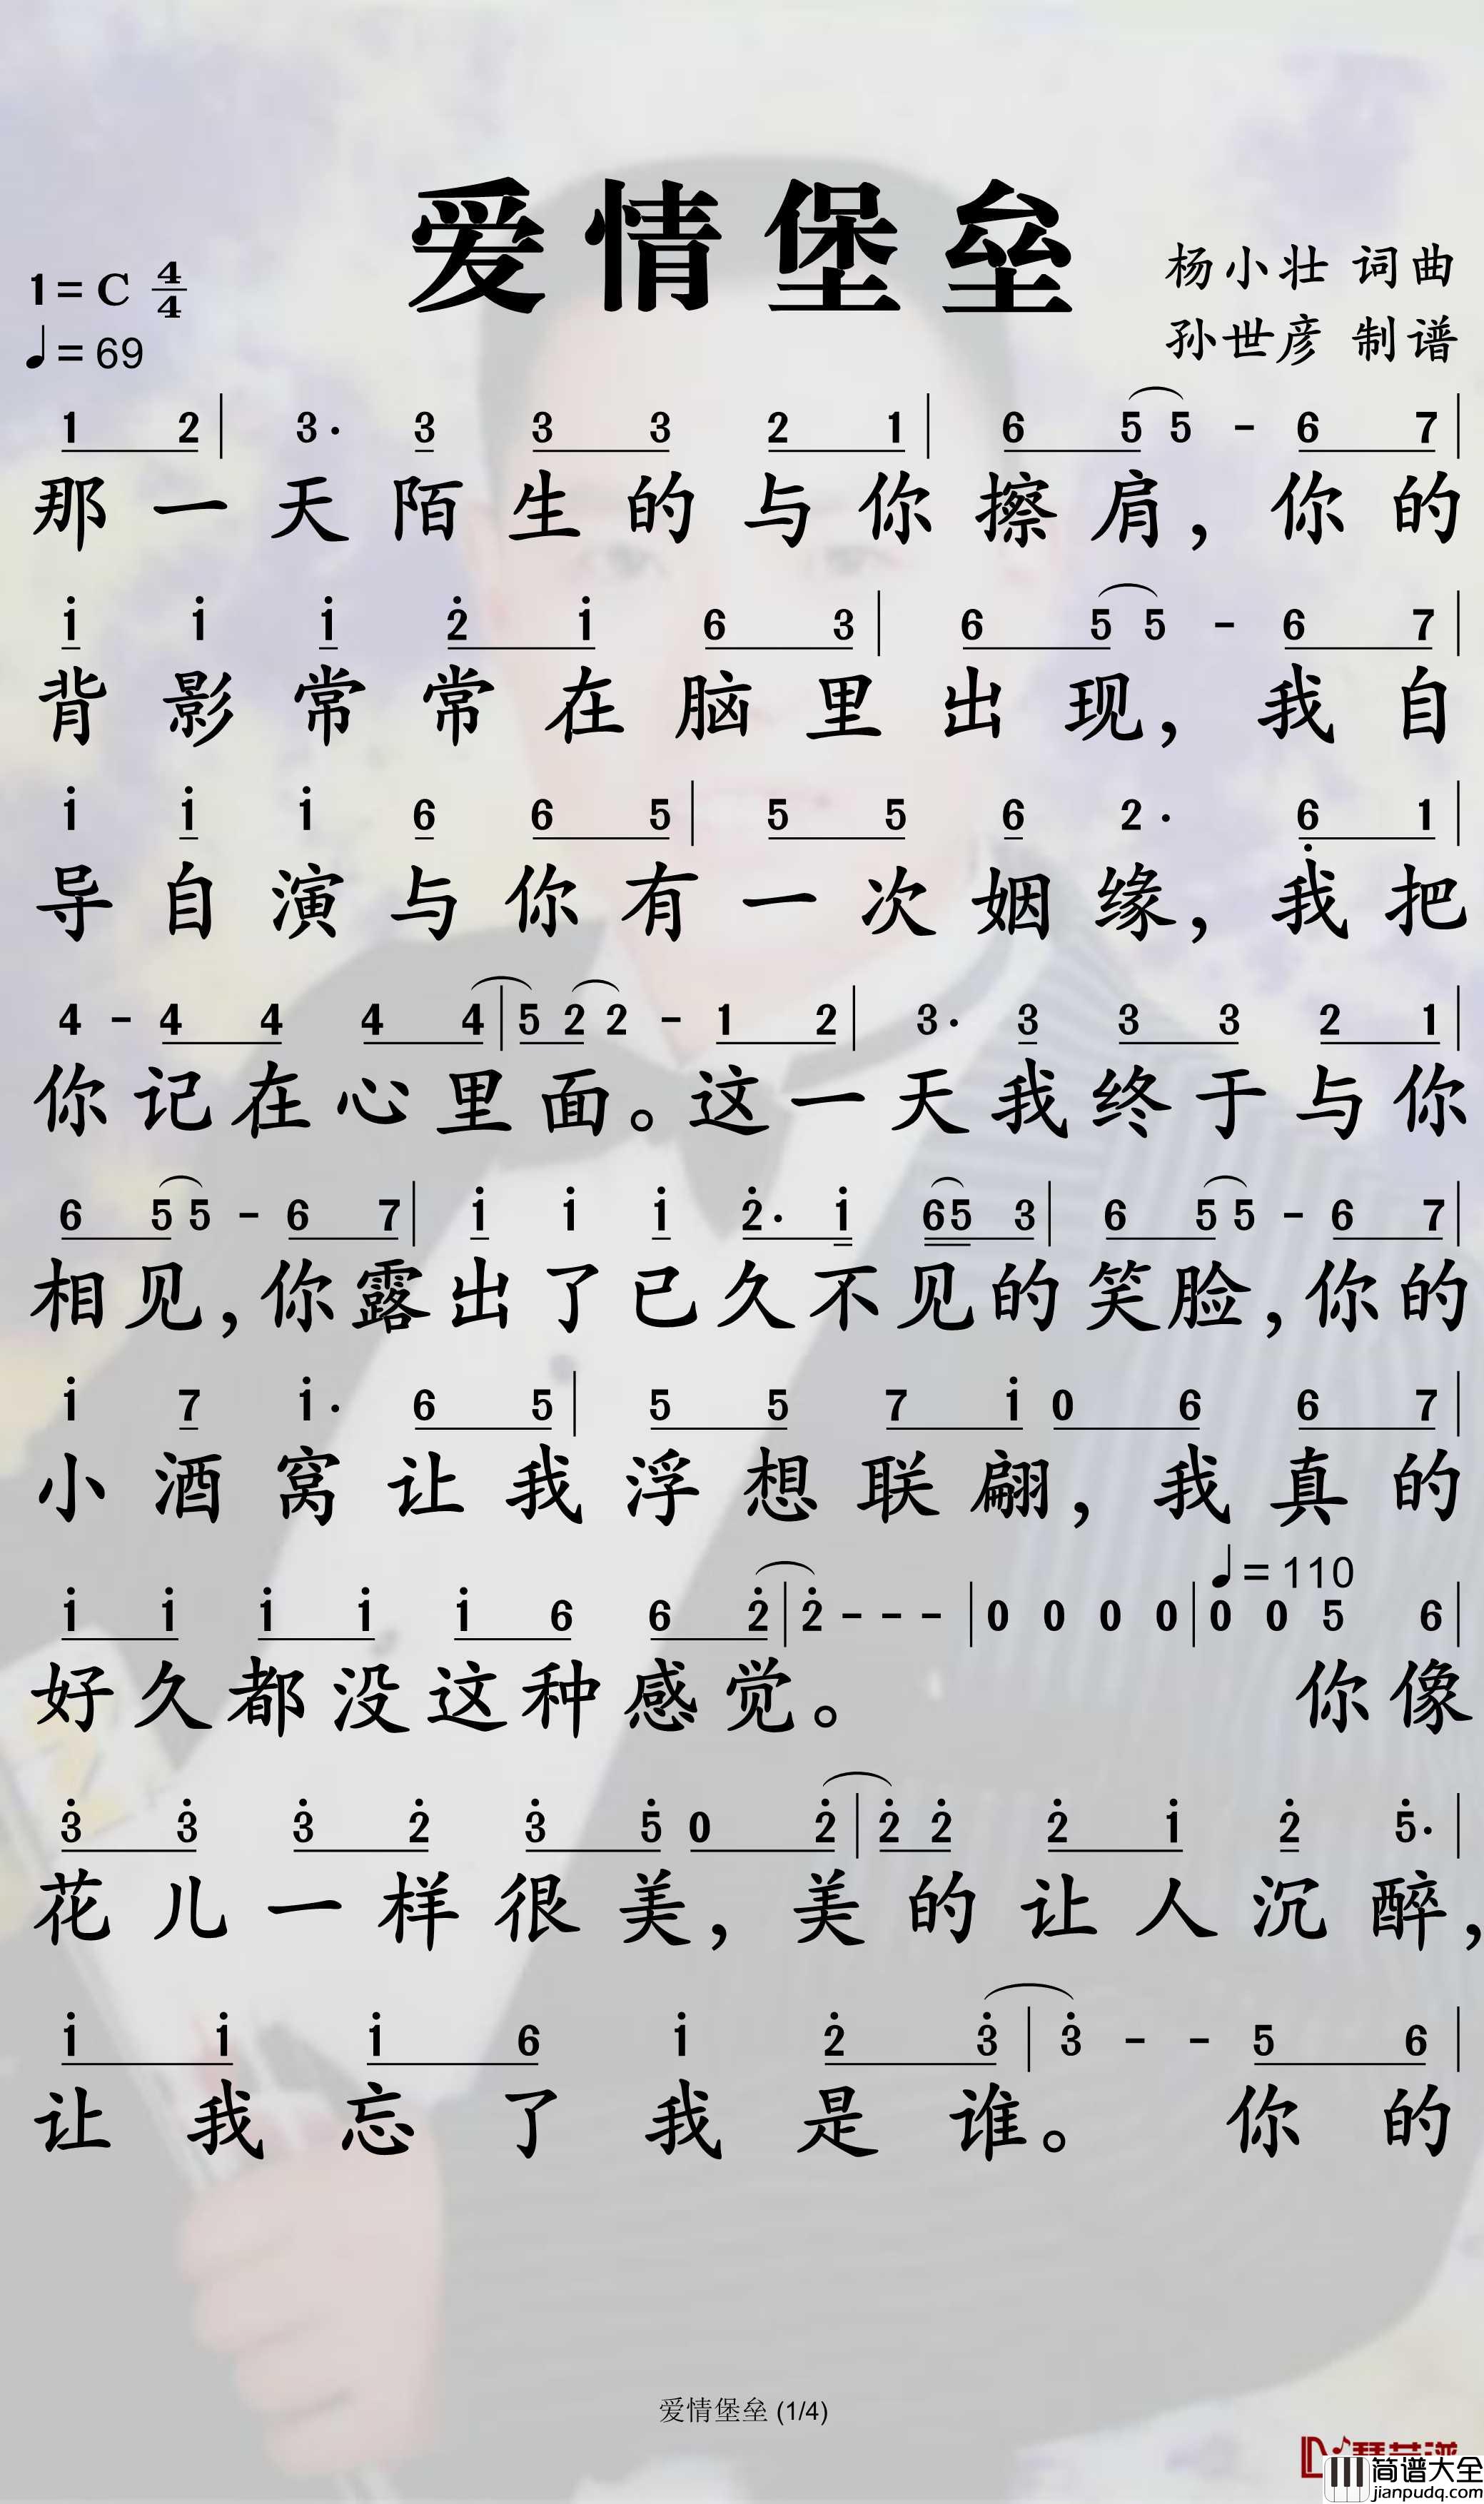 爱情堡垒
1=C 4/4
♩=69
杨小壮 词曲
孙世彦 制谱
1 2 | 3· 3 3 3 2 1 | 6 5 5 - 6 7 |
那一天陌生的与你擦肩，你的
i i i 2̇ i 6 3 | 6 5 5 - 6 7 |
背影常常在脑里出现，我自
i i i 6 6 5 | 5 5 6 2· 6̣ 1 |
导自演与你有一次姻缘，我把
4 - 4 4 4 4 | 5 2 2 - 1 2 | 3· 3 3 3 2 1 |
你记在心里面。这一天我终于与你
6 5 5 - 6 7 | i i i 2̇· i 6 5 3 | 6 5 5 - 6 7 |
相见，你露出了已久不见的笑脸，你的
i 7 i· 6 5 | 5 5 7 i 0 6 6 7 |
小酒窝让我浮想联翩，我真的
♩=110
i i i i i 6 6 2̇ | 2̇ - - - | 0 0 0 0 | 0 0 5 6 |
好久都没这种感觉。 你像
3̇ 3̇ 3̇ 2̇ 3̇ 5̇ 0 2̇ | 2̇ 2̇ 2̇ i 2̇ 5̇· |
花儿一样很美，美的让人沉醉，
i i i 6 i 2̇ 3̇ | 3̇ - - 5 6 |
让我忘了我是谁。 你的
爱情堡垒 (1/4)
简谱大全
jianpudq.com